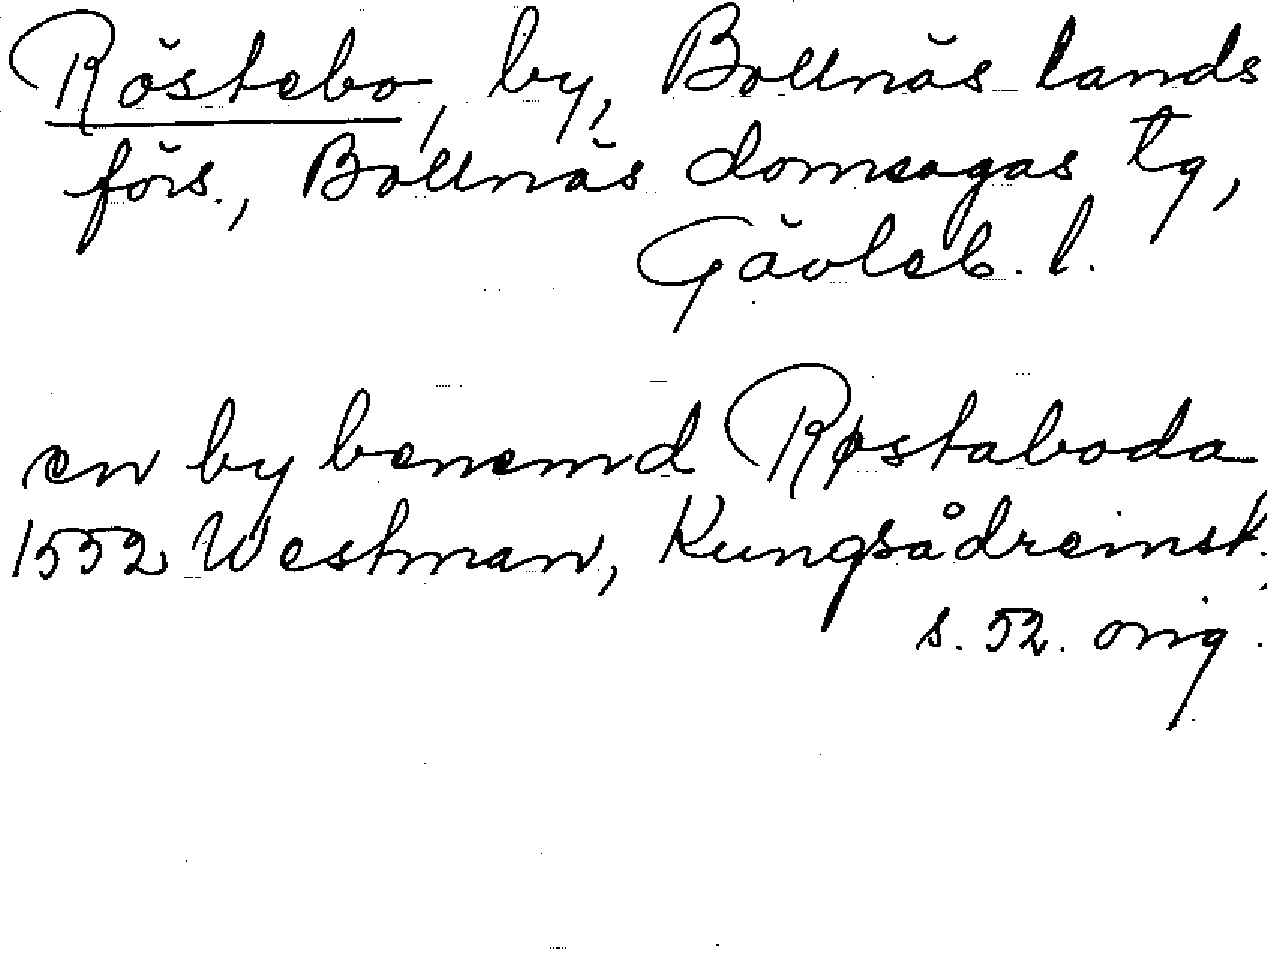 Röstebo, by, Bollnäs lands
förs., Bollnäs domsagas tg,
Gävleb. l.
en by benemd Røstaboda
1552 Westman, Kungsådreinst.,
s. 52. orig.